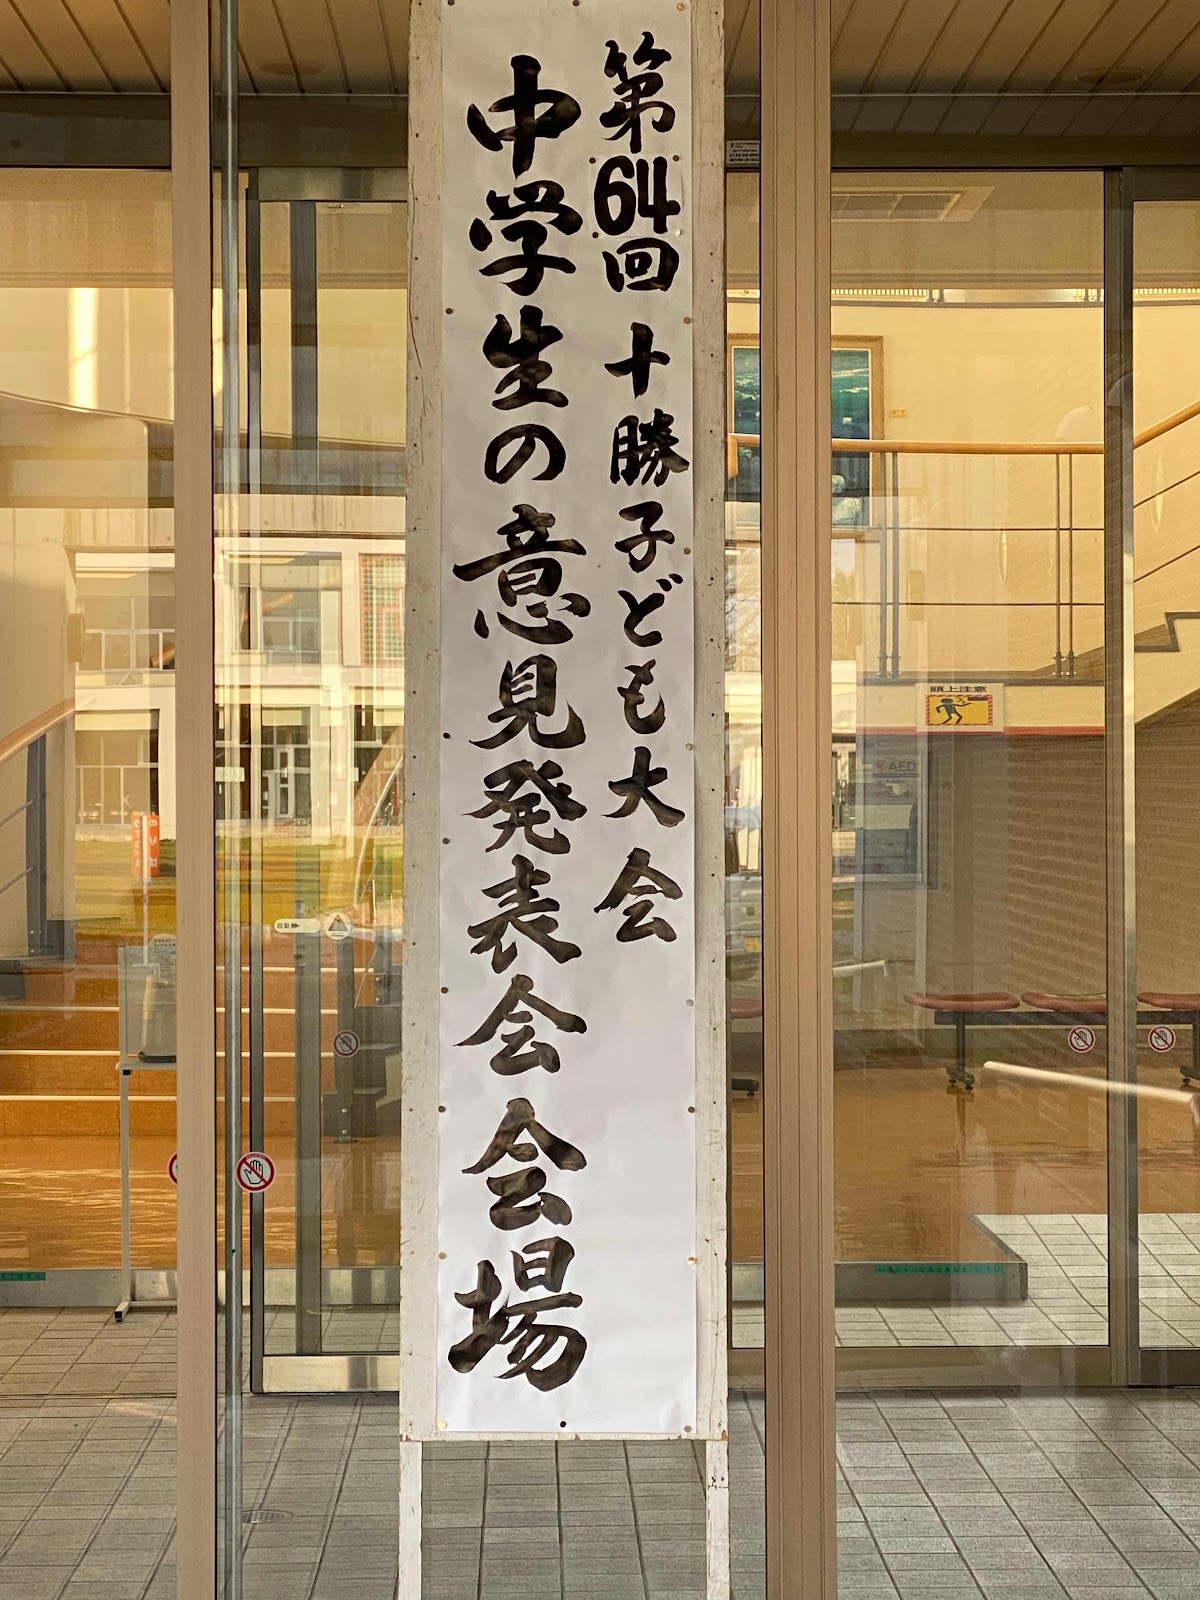 第64回 十勝子ども大会
中学生の意見発表会 会場
頭上注意
AED
自動